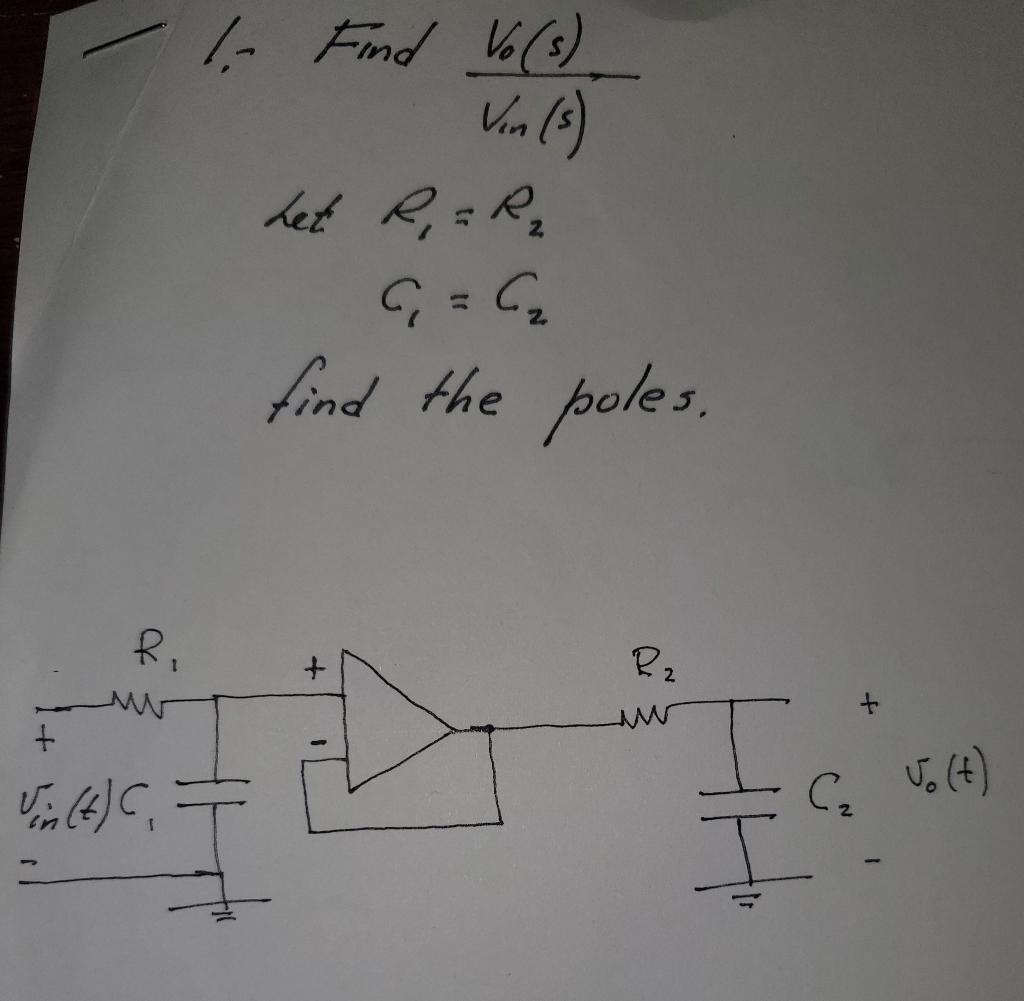 1.- Find Vo(s)
Vin(s)
Let R1 = R2
C1 = C2
find the poles.
R1
+
R2
+
+
-
Vin(t) C1
C2
Vo(t)
-
-